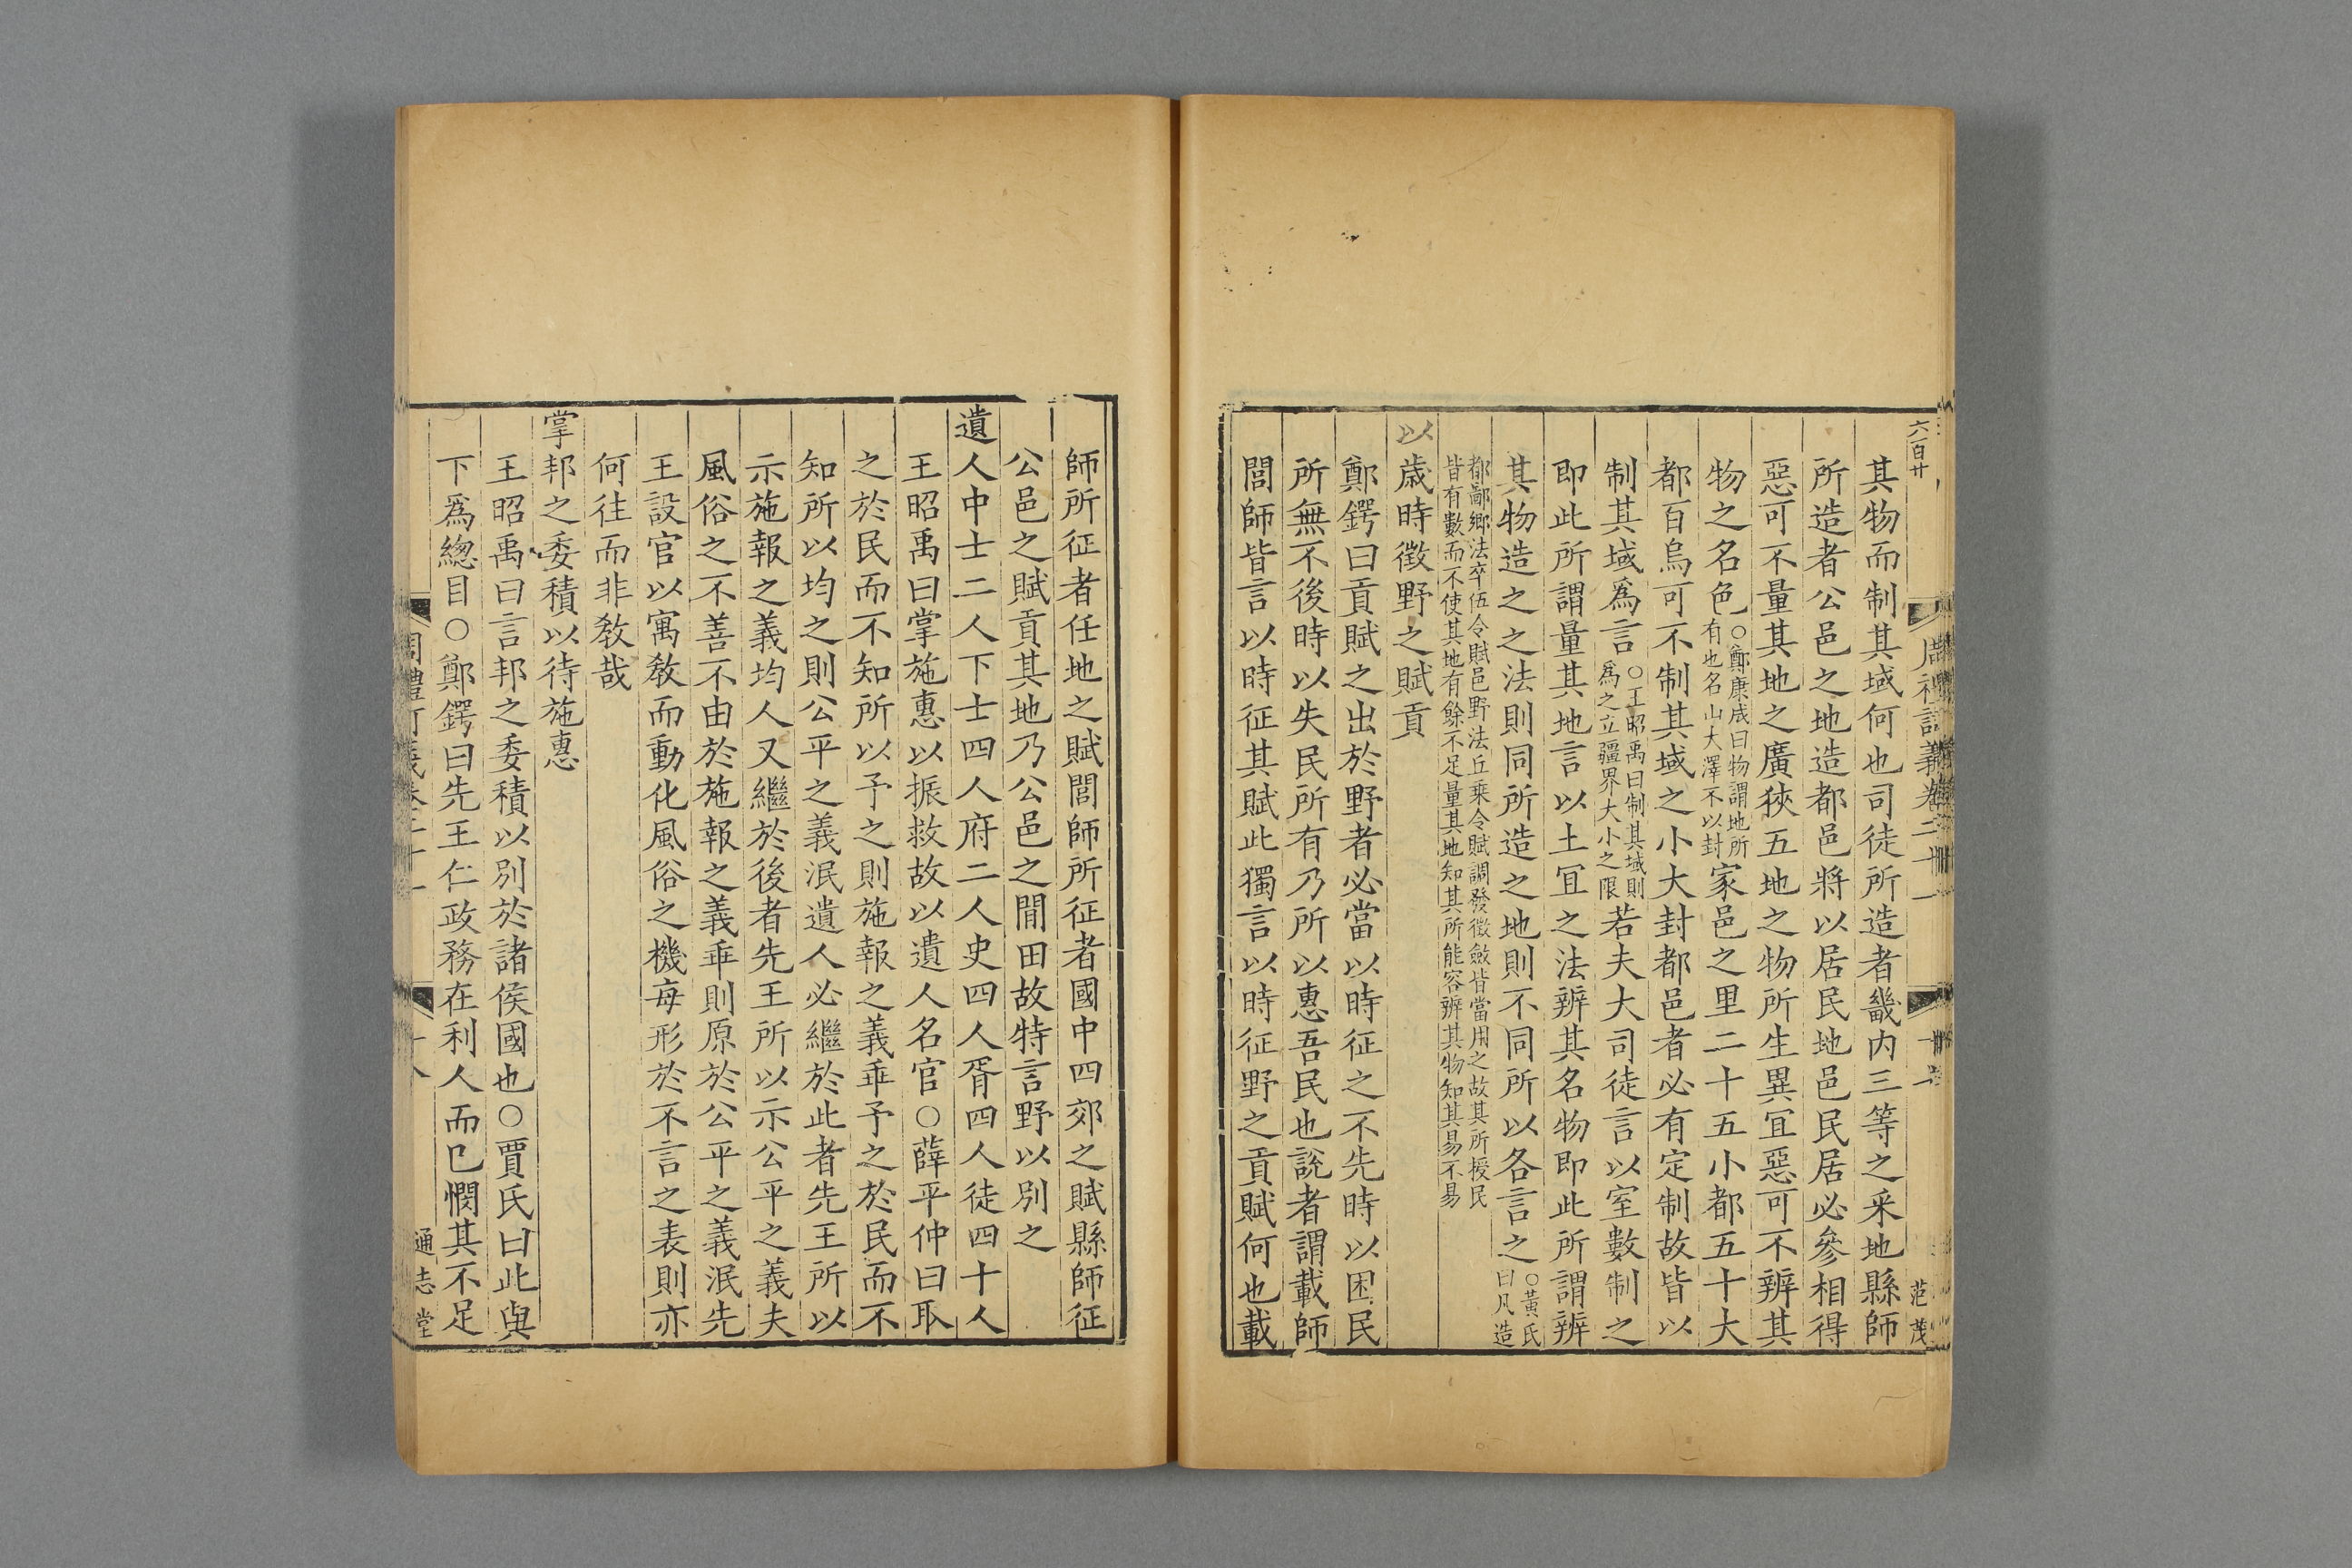 六百廿
周禮訂義卷二十一
范茂
其物而制其域何也司徒所造者畿内三等之采地縣師
所造者公邑之地造都邑將以居民地邑民居必參相得
惡可不量其地之廣狹五地之物所生異宜惡可不辨其
物之名色○鄭康成曰物謂地所有也名山大澤不以封家邑之里二十五小都五十大
都百烏可不制其域之小大封都邑者必有定制故皆以
制其域爲言○王昭禹曰制其域則爲之立疆界大小之限若夫大司徒言以室數制之
即此所謂量其地言以土宜之法辨其名物即此所謂辨
其物造之之法則同所造之地則不同所以各言之○黃氏曰凡造
都鄙鄉法卒伍令賦邑野法丘乘令賦調發徵斂皆當用之故其所授民
皆有數而不使其地有餘不足量其地知其所能容辨其物知其易不易
以歲時徵野之賦貢
鄭鍔曰貢賦之出於野者必當以時征之不先時以困民
所無不後時以失民所有乃所以惠吾民也說者謂載師
閭師皆言以時征其賦此獨言以時征野之貢賦何也載
師所征者任地之賦閭師所征者國中四郊之賦縣師征
公邑之賦貢其地乃公邑之閒田故特言野以別之
遺人中士二人下士四人府二人史四人胥四人徒四十人
王昭禹曰掌施惠以振救故以遺人名官○薛平仲曰取
之於民而不知所以予之則施報之義乖予之於民而不
知所以均之則公平之義泯遺人必繼於此者先王所以
示施報之義均人又繼於後者先王所以示公平之義夫
風俗之不善不由於施報之義乖則原於公平之義泯先
王設官以寓敎而動化風俗之機每形於不言之表則亦
何往而非敎哉
掌邦之委積以待施惠
王昭禹曰言邦之委積以別於諸侯國也○賈氏曰此與
下爲總目○鄭鍔曰先王仁政務在利人而已憫其不足
周禮訂義卷二十一
十八
通志堂